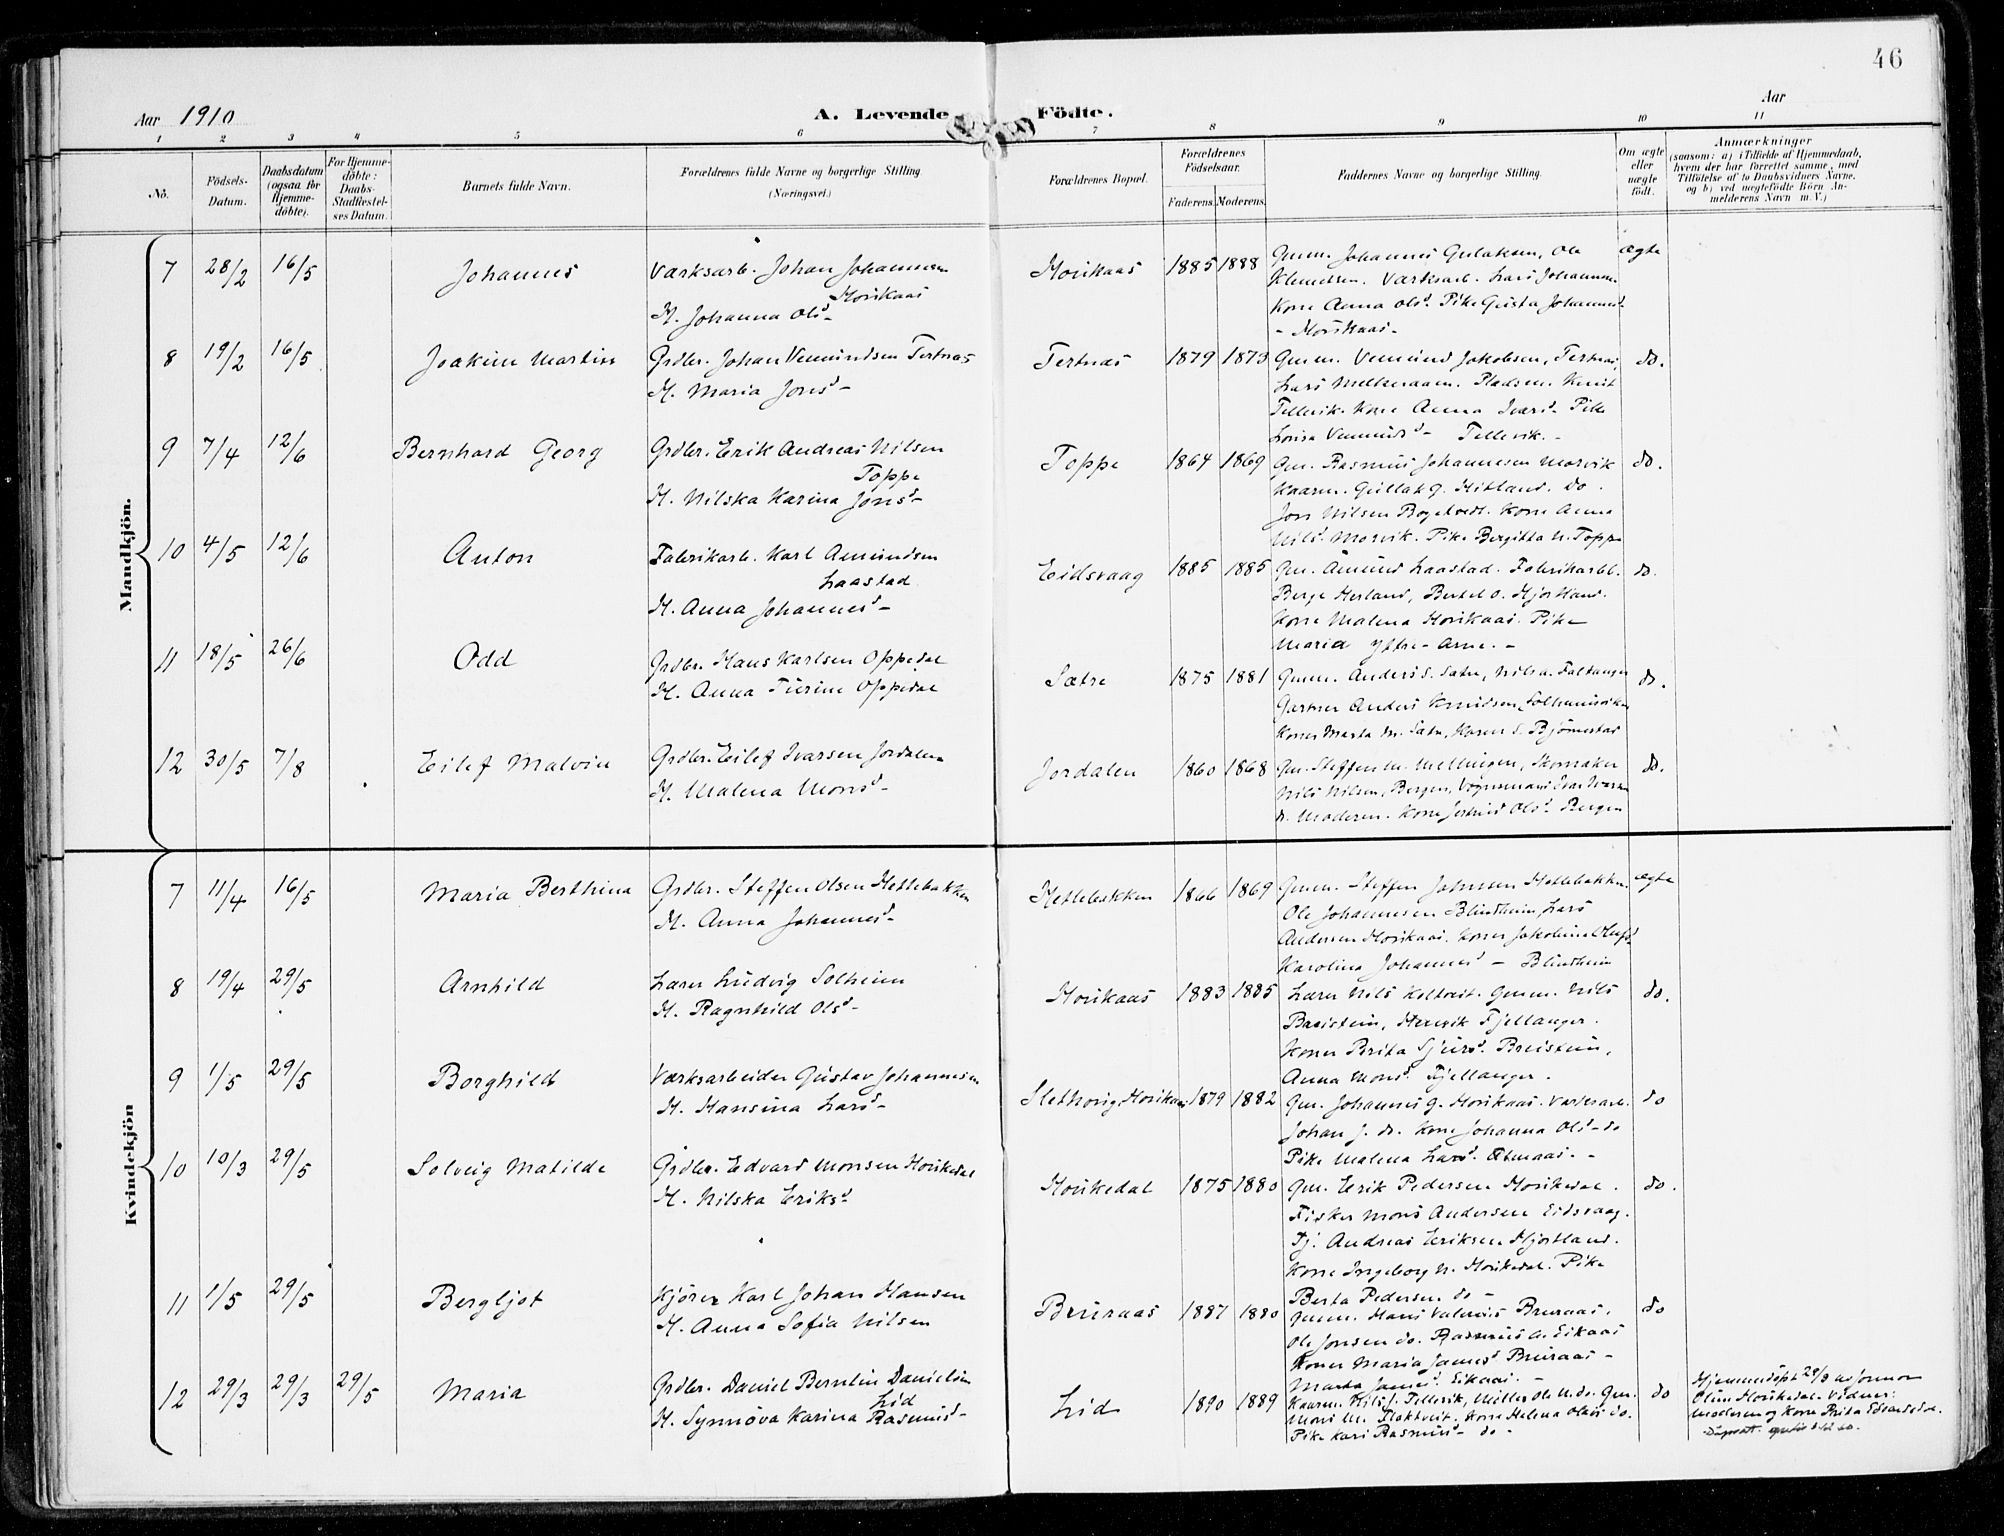 46
Aar 1910
A. Levende Födte.
Aar
1 2 3 4 5 6 7 8 9 10 11
No.
Födsels-Datum.
Daabsdatum (ogsaa for Hjemmedöbte).
For Hjemmedöbte: Daabs-Stadfæstelses Datum.
Barnets fulde Navn.
Forældrenes fulde Navne og borgerlige Stilling (Næringsvei.)
Forældrenes Bopæl.
Forældrenes Födselsaar.
Faderens. Moderens.
Faddernes Navne og borgerlige Stilling.
Om ægte eller uægte födt.
Anmærkninger
(saasom: a) i Tilfælde af Hjemmedaab,
hvem der har forrettet samme, med
Tilföielse af to Daabsvidners Navne.
og b) ved uægtefödte Börn Anmelderens Navn m. V.)
Mandkjön.
7 28/2 16/5 Johannes
Værksarb. Johan Johannesen
Horikaas
H. Johanna Olsd-
Horikaas 1885 1888
Gmm. Johannes Gulaksen, Ole
Klemetsen. Værksarb. Lars Johannesen
Kone Anna Olsd. Pike Gusta Johannesd-
- Horikaas-
ægte
8 19/2 16/5 Joakim Martin
Grdbr. Johan Vemundsen Tertnæs
H. Maria Jonsd-
Tertnæs 1879 1873
Gmm. Vemund Jakobsen, Tertnæs,
Lars Melkeraaen. Pladsm. Knut
Tellevik. Kone Anna Ivarsd- Pike
Lovisa Vemundsd- Tellevik.-
do.
9 7/4 12/6 Bernhard Georg
Grdbr. Erik Andreas Nilsen
Toppe
H. Nilska Karina Jonsd-
Toppe 1864 1869
Gm. Rasmus Johannesen Morvik
Kaarm. Gullak G. Hitland. do.
Jon Nilsen Bogetvedt. Kone Anna
Nilsd. Morvik. Pike Bergitta N. Toppe
do.
10 4/5 12/6 Anton
Fabrikarb. Karl Amundsen
Laastad
H. Anna Johannesd-
Eidsvaag 1885 1885
Gm. Amund Laastad. Fabrikarbb.
Berge Herland, Bertel O. Hjortland.
Kone Malena Horikaas. Pike
Maria Ytre-Arne.-
do.
11 18/5 26/6 Odd
Grdbr. Hans Karlsen Oppedal
H. Anna Turine Oppedal
Sætre 1875 1881
Gmm. Anders S. Sætre, Nils A. Faltanger
Gartner Anders Knudsen, Solhaumsviken
Koner Marta M. Sætre, Karen S. Bjørnestad
do.
12 30/5 7/8 Eilef Malvin
Grdbr. Eilef Ivarsen Jordalen
H. Malena Monsd-
Jordalen 1860 1868
Gm. Steffen M. Mellingen, Skomaker
Nils Nilsen, Bergen, Vognmand Ivar Ivarsen
do. Moderen. Kone Jertrud Olsd. Bergen
do.
Kvindekjön
7 11/4 16/5 Maria Berthina
Grdbr. Steffen Olsen Hettebakken
H. Anna Johannesd-
Hettebakken 1866 1869
Gmm. Steffen Johnsen Hettebakken.
Ole Johannesen Blindheim, Lars
Andersen Horikaas. Koner Jakobina Olufsd.
Karolina Johannesd- Blindheim
ægte
8 19/4 29/5 Arnhild
Lærer Ludvig Solheim
H. Ragnhild Olsd-
Horikaas 1883 1885
Lærer Nils Koltveit. Gmm. Nils
Breistein, Henrik Fjellanger.
Koner Brita Sjursd. Breistein,
Anna Monsd. Fjellanger.
do.
9 1/5 29/5 Borghild
Værksarbeider Gustav Johannesen
H. Hansina Larsd-
Slethovig, Horikaas 1879 1882
Gm. Johannes G. Horikaas. Værksarb.
Johan J. do. Kone Johanna Olsd-do
Pike Malena Larsd. Almaas.-
do
10 10/3 29/5 Solveig Matilde
Grdbr. Edvard Monsen Horikedal
H. Nilska Eriksd
Horikedal 1875 1880
Gm. Erik Pedersen Horikedal.
Fisker Mons Andersen Eidsvaag.
Tj. Andreas Eriksen Hjortland.
Kone Ingeborg N. Horikedal. Pike
Berta Pedersen do-
do.
11 1/5 29/5 Bergljot
Kjører Karl Johan Hansen
H. Anna Sofia Nilsen
Bruraas 1887 1880
Gmm. Hans Valerius Bruraas.
Ole Jonsen do. Rasmus A. Eikaas
Koner Maria Jansd Bruraas-
Marta Jansd. Eikaas.-
do
12 29/3 29/3 29/5 Maria
Grdbr. Daniel Berntin Danielsen
Lid
H. Synnøva Karina Rasmusd-
Lid 1890 1889
Kaarm. Nils J. Tellevik, Møller Ole N. do. Gm.
Mons M. Flaktveit. Kone Helena Olsd do.
Pike Kari Rasmusd- do-
do
Hjemmedøpt 29/3 av Jormor
Horikedal. Vidner:
Moderen og Kone Brita